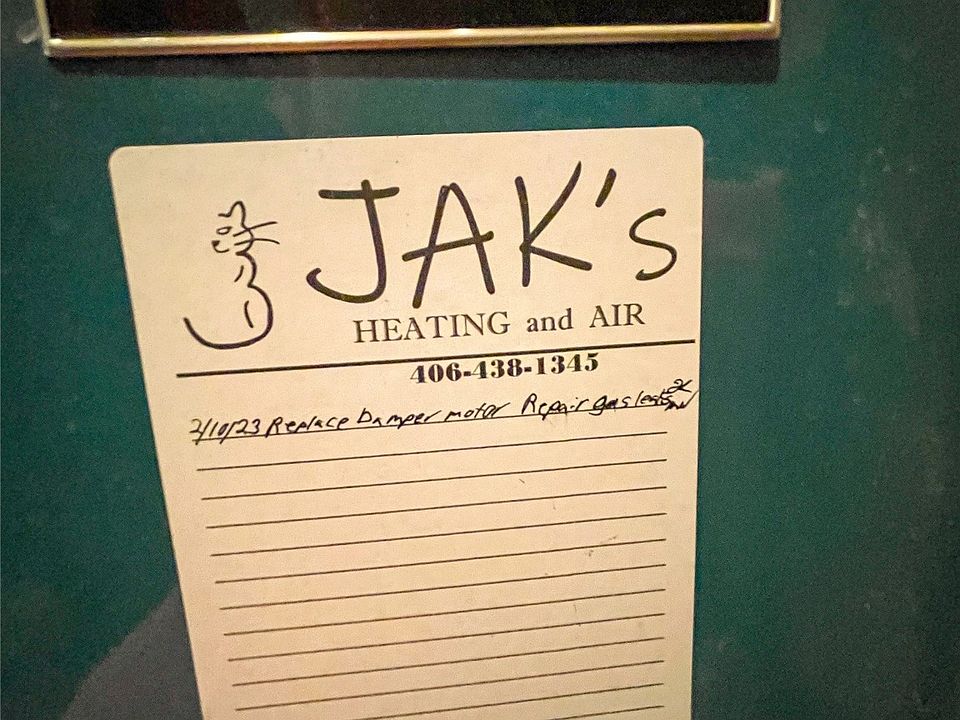 JAK's
HEATING and AIR
406-438-1345
2/10/23 Replace Damper motor Repair gas leaks